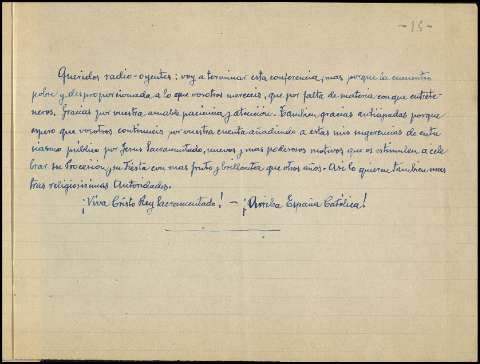 -15-
Queridos radio-oyentes: voy a terminar esta conferencia, mas porque la encuentro
pobre y desproporcionada a lo que vosotros mereceis, que por falta de materia con que entrete-
neros. Gracias por vuestra amable paciencia y atencion. Tambien, gracias anticipadas porque
espero que vosotros continueis por vuestra cuenta añadiendo a estas mis sugerencias de entu-
siasmo publico por Jesus Sacramentado, nuevos y mas poderosos motivos que os estimulen a cele-
brar su Procesión y su Fiesta con mas fruto y brillantez que otros años. Asi lo quieren tambien nues-
tras religiosisimas Autoridades.
¡Viva Cristo Rey Sacramentado! - ¡Arriba España Católica!